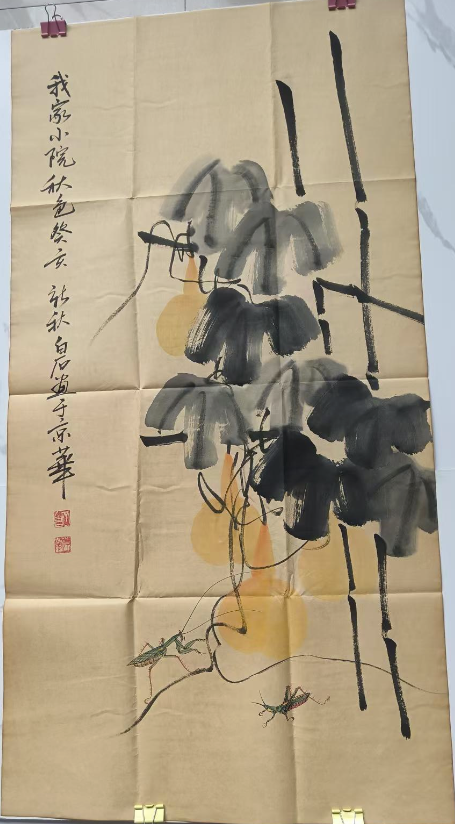 我家小院秋色癸亥新秋白石画于京华